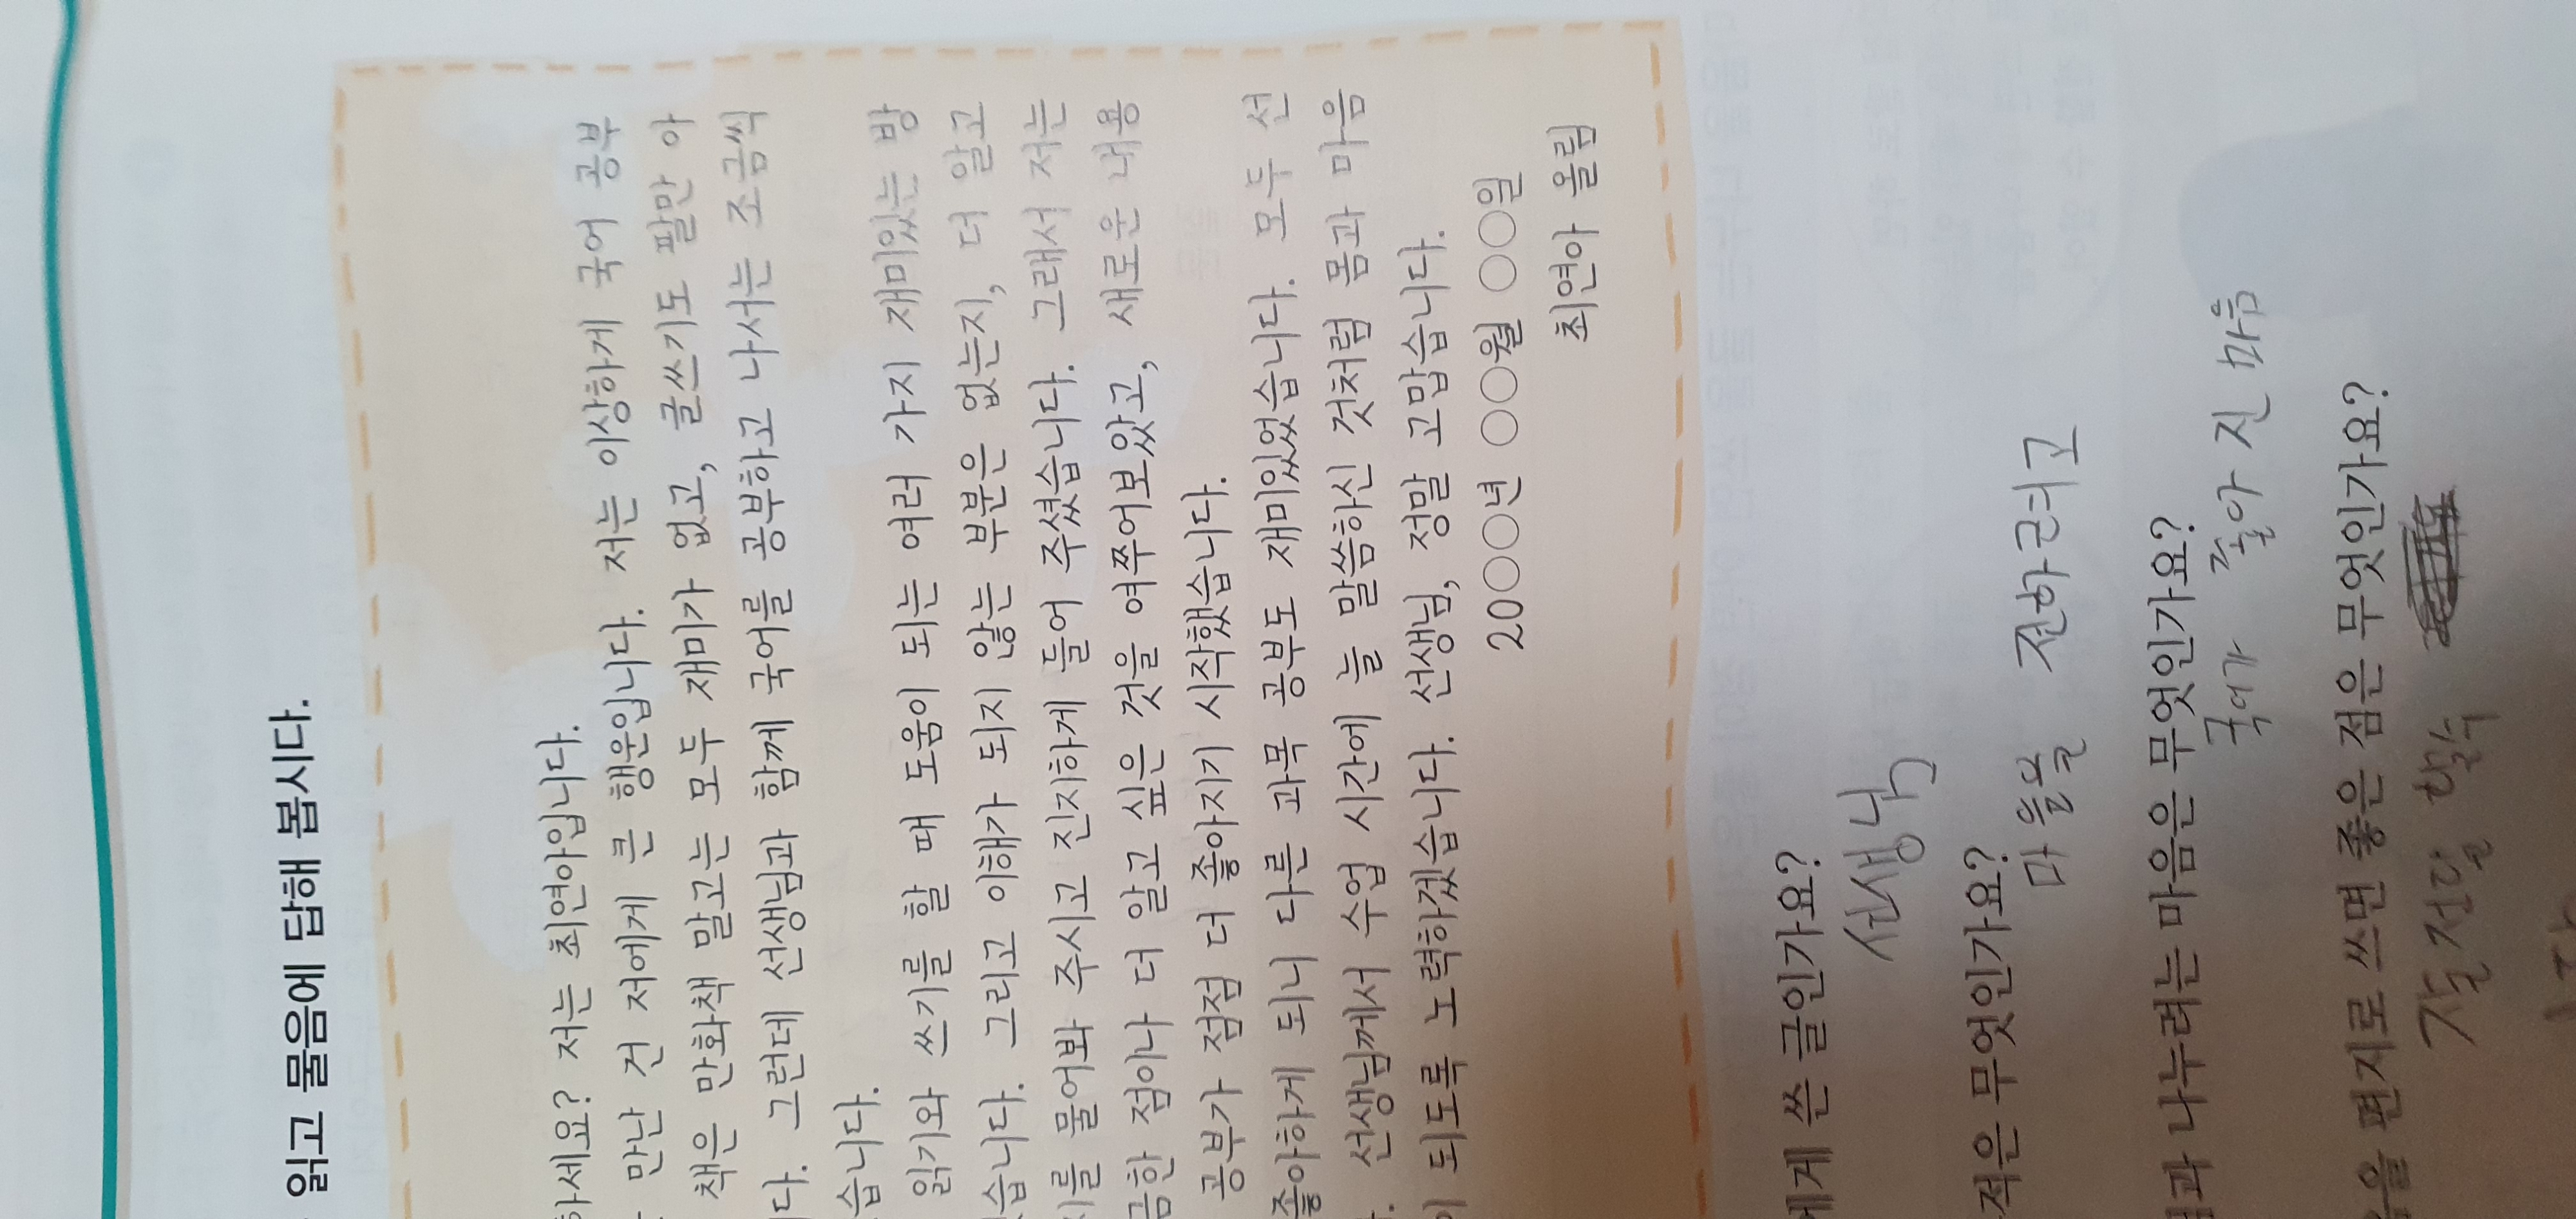 읽고 물음에 답해 봅시다.
하세요? 저는 최연아입니다.
만난 건 저에게 큰 행운입니다. 저는 이상하게 국어 공부
책은 만화책 말고는 모두 재미가 없고, 글쓰기도 팔만 아
다. 그런데 선생님과 함께 국어를 공부하고 나서는 조금씩
습니다.
읽기와 쓰기를 할 때 도움이 되는 여러 가지 재미있는 방
습니다. 그리고 이해가 되지 않는 부분은 없는지, 더 알고
지를 물어봐 주시고 진지하게 들어 주셨습니다. 그래서 저는
금한 점이나 더 알고 싶은 것을 여쭈어보았고, 새로운 내용
공부가 점점 더 좋아지기 시작했습니다.
좋아하게 되니 다른 과목 공부도 재미있었습니다. 모두 선
. 선생님께서 수업 시간에 늘 말씀하신 것처럼 몸과 마음
이 되도록 노력하겠습니다. 선생님, 정말 고맙습니다.
20○○년 ○○월 ○○일
최연아 올림
에게 쓴 글인가요?
선생님
적은 무엇인가요?
마음을 전하려고
과 나누려는 마음은 무엇인가요?
국어가 좋아 진 마음
음을 편지로 쓰면 좋은 점은 무엇인가요?
잘 전달 할수